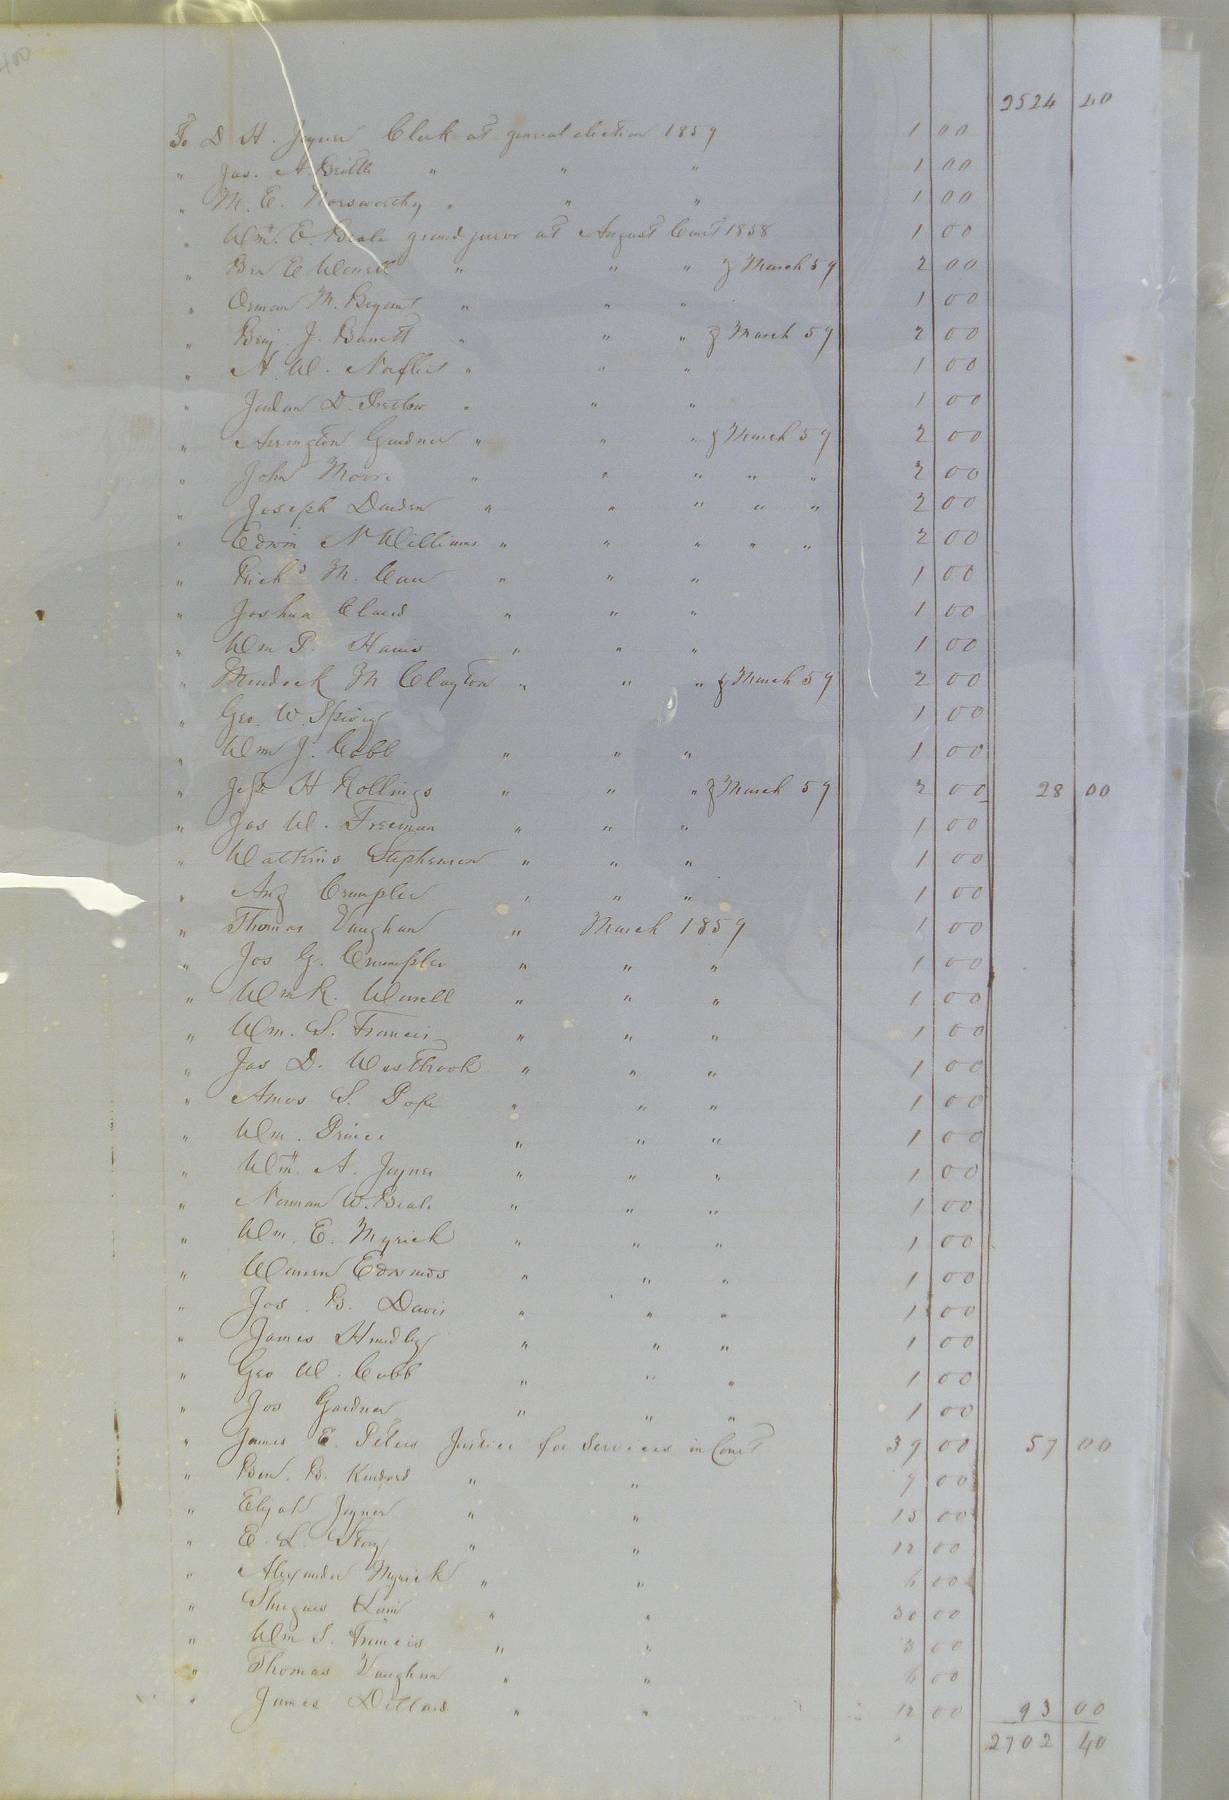 400
2524 40
To D H. Joyner Clerk at general election 1859 1 00
" Jas. A. Britt " " " 1 00
" M. E. Norsworthy " " " 1 00
" Wm. E. Beale grand juror at August Court 1858 1 00
" Ben E Worrell " " " & March 59 2 00
" Orman M. Bryant " " " 1 00
" Benj. J. Barrett " " " & March 59 2 00
" A. W. Norfleet " " " 1 00
" Jordan D. Pretlow " " " 1 00
" Arrington Gardner " " " & March 59 2 00
" John Moore " " " " " 2 00
" Joseph Darden " " " " " 2 00
" Edwin N Williams " " " " " 2 00
" Richd M. Carr " " " 1 00
" Joshua Claud " " " 1 00
" Wm P. Harris " " " 1 00
" Murdock M Clayton " " " & March 59 2 00
" Geo. W. Spivey 1 00
" Wm J. Cobb " " " 1 00
" Jesse H Rollings " " " & March 59 2 00 28 00
" Jas W. Freeman " " " 1 00
" Watkins Stephenson " " " 1 00
" Crumpler " " " 1 00
" Thomas Vaughan " March 1859 1 00
" Jos G. Crumpler " " " 1 00
" Wm R. Worrell " " " 1 00
" Wm. S. Francis " " " 1 00
" Jas D. Westbrook " " " 1 00
" Amos S. Pope " " " 1 00
" Wm. Prince " " " 1 00
" Wm. A. Joyner " " " 1 00
" Norman W. Beale " " " 1 00
" Wm. E. Myrick " " " 1 00
" Warren Edwards " " " 1 00
" Jos. B. Davis " " " 1 00
" James Hundley " " " 1 00
" Geo W. Cobb " " " 1 00
" Jos Gardner " " " 1 00
" James E. Peters Justice for Services in Court 39 00 57 00
" Ben. B. Kindred " " 9 00
" Elijah Joyner " " 15 00
" E. L. Story " " 12 00
" Alexander Myrick " " 6 00
" Lain " " 30 00
" Wm S. Francis " " 3 00
" Thomas Vaughan " " 6 00
" James Dillard " " 12 00 93 00
2702 40